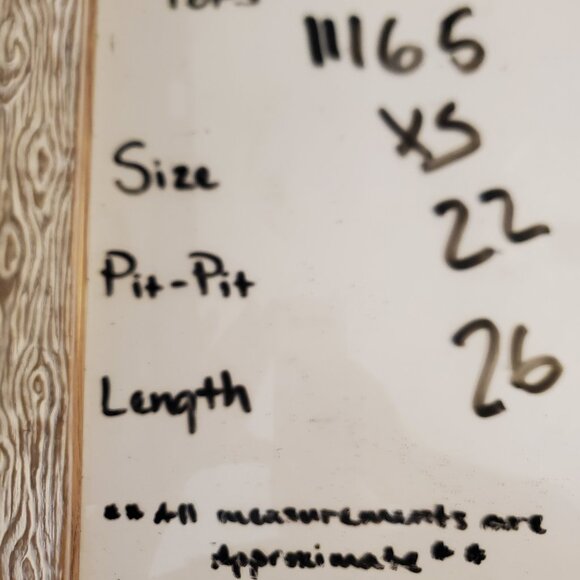 11165
Size XS
Pit-Pit 22
Length 26
** All measurements are
Approximate **